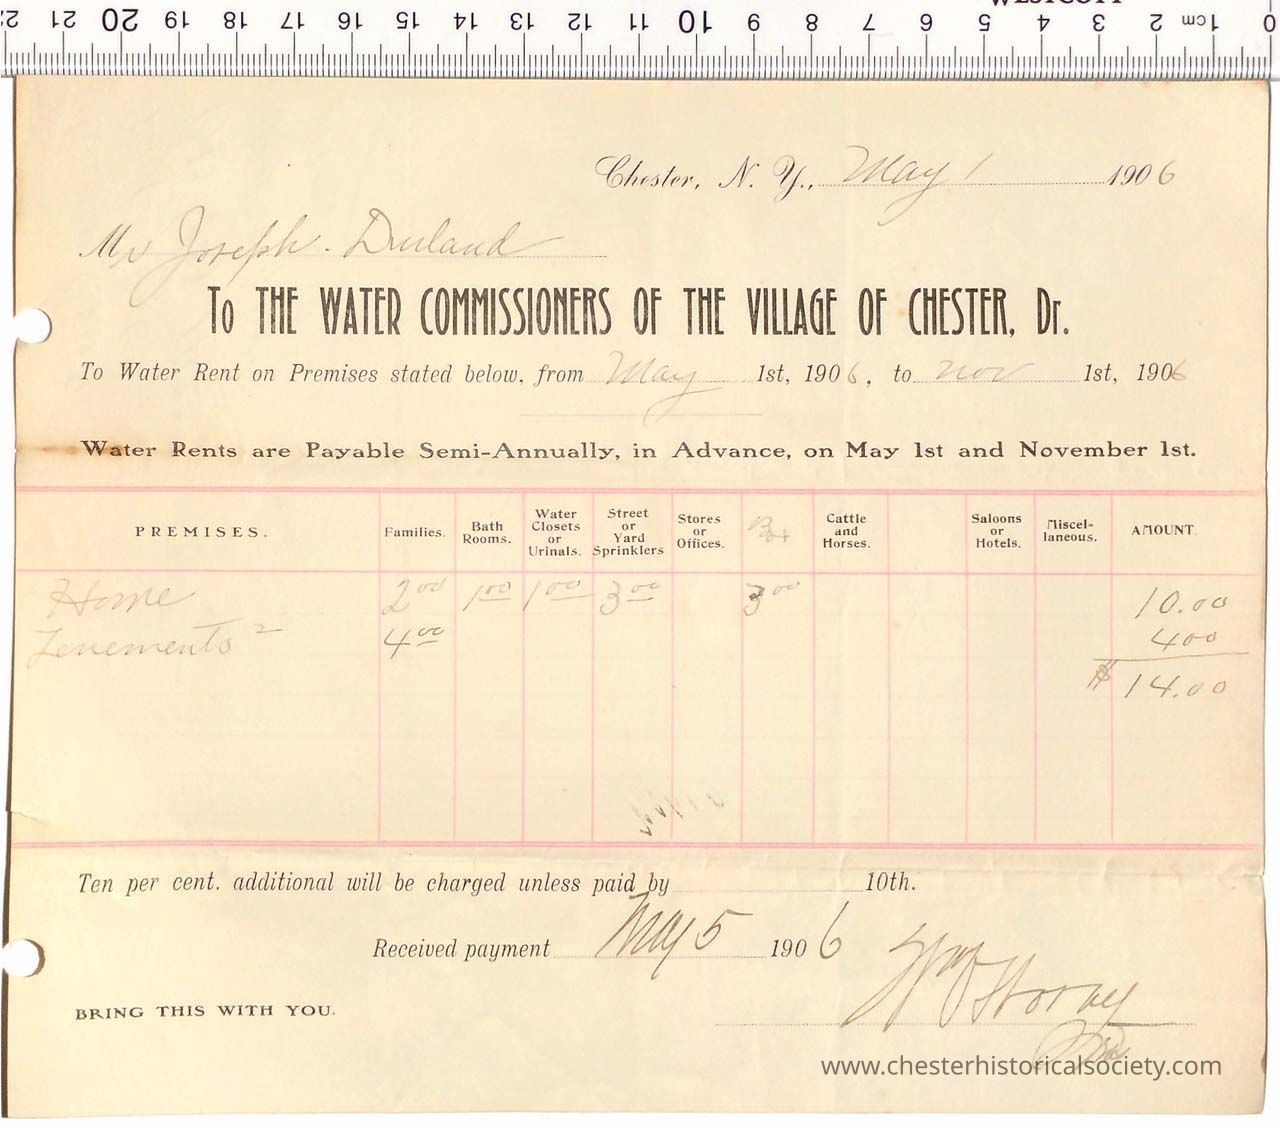 WESTCOTT
0 1cm 2 3 4 5 6 7 8 9 10 11 12 13 14 15 16 17 18 19 20 21 22
Chester, N. Y., May 1 1906
Mr Joseph. Durland
To THE WATER COMMISSIONERS OF THE VILLAGE OF CHESTER, Dr.
To Water Rent on Premises stated below, from May 1st, 1906, to nov 1st, 1906
Water Rents are Payable Semi-Annually, in Advance, on May 1st and November 1st.
PREMISES. Families. Bath Rooms. Water Closets or Urinals. Street or Yard Sprinklers Stores or Offices. Cattle and Horses. Saloons or Hotels. Miscellaneous. AMOUNT.
Home 2 00 1 00 1 00 3 00 3 00 10.00
Tenements 2 4 00 4 00
$ 14.00
Ten per cent. additional will be charged unless paid by 10th.
Received payment May 5 1906
BRING THIS WITH YOU.
www.chesterhistoricalsociety.com